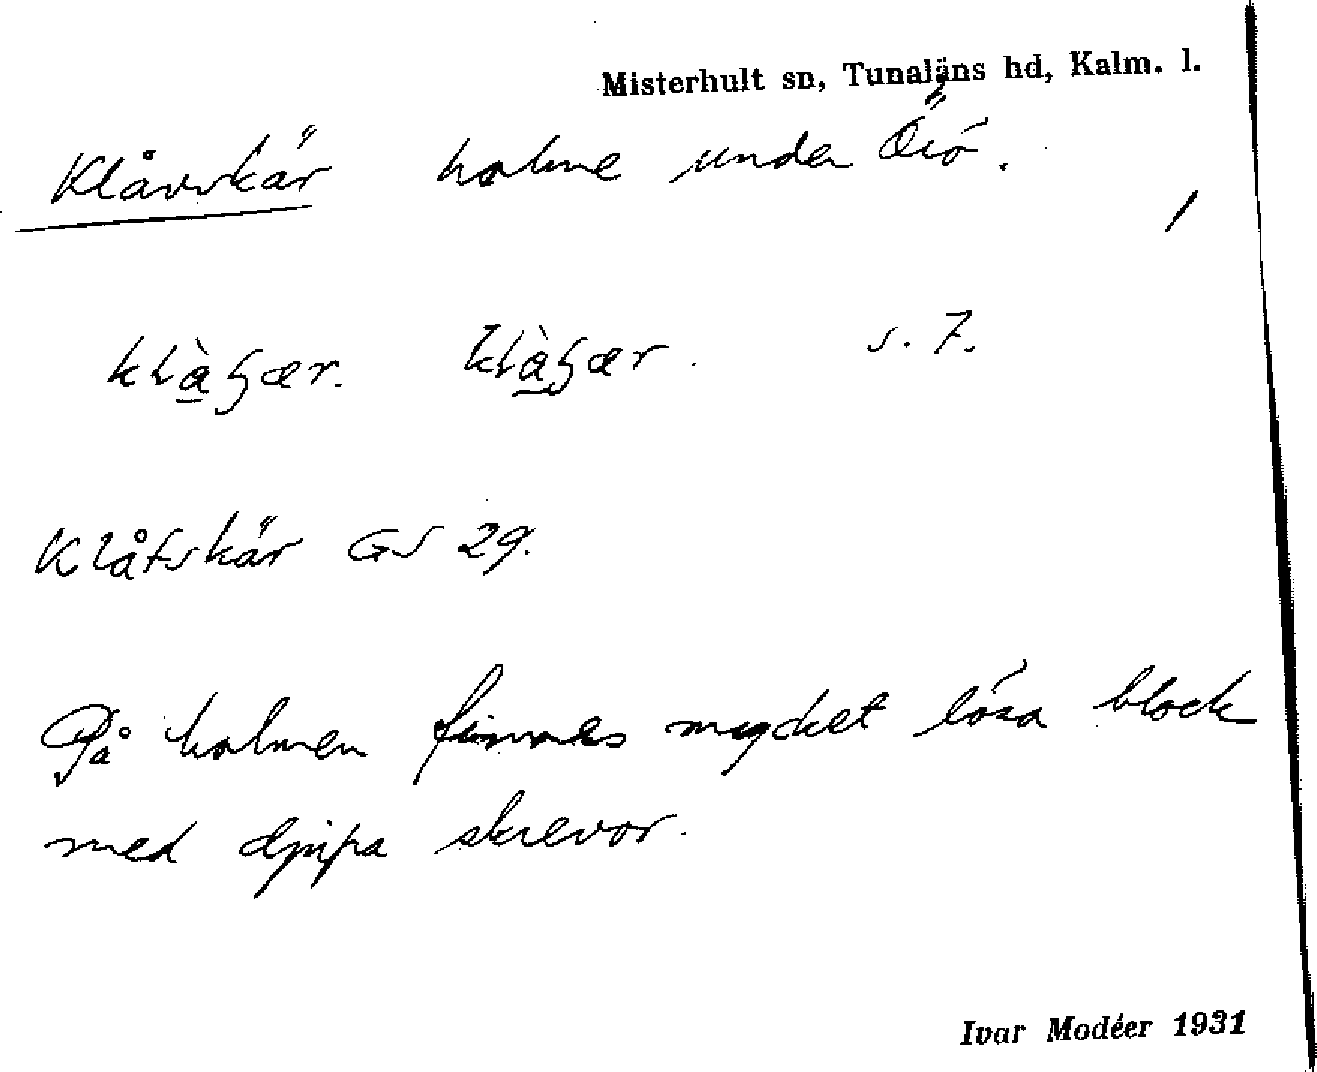 Misterhult sn, Tunaläns hd, Kalm. l.
Klåvskär holme under Örö.
/
klàʂær. klàʂær. s. 7.
Klåfskär GS 29.
På holmen finnes mycket lösa block
med djupa skrevor.
Ivar Modéer 1931